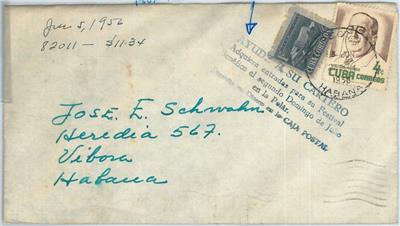 Jun 5, 1956
82011 — $11.34
AYUDE A SU CARTERO
Adquiera entradas para su Festival
el segundo Domingo de Julio
en la Polar.
en la CAJA POSTAL
CUBA CORREOS
4¢
CUBA CORREOS
1956
HABANA
José E. Schwahn
Heredia 567.
Vibora
Habana